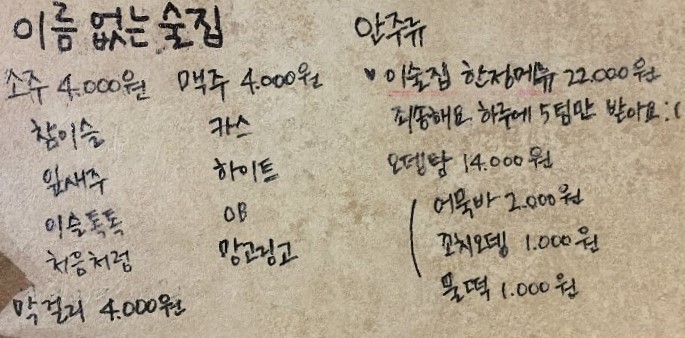 이름 없는 술집
소주 4.000원 맥주 4.000원
참이슬 카스
잎새주 하이트
이슬톡톡 OB
처음처럼 망고링고
막걸리 4.000원
안주류
♥ 이술집 한정메뉴 22.000원
죄송해요 하루에 5팀만 받아요:(
오뎅탕 14.000원
어묵바 2.000원
꼬치오뎅 1.000원
물떡 1.000원